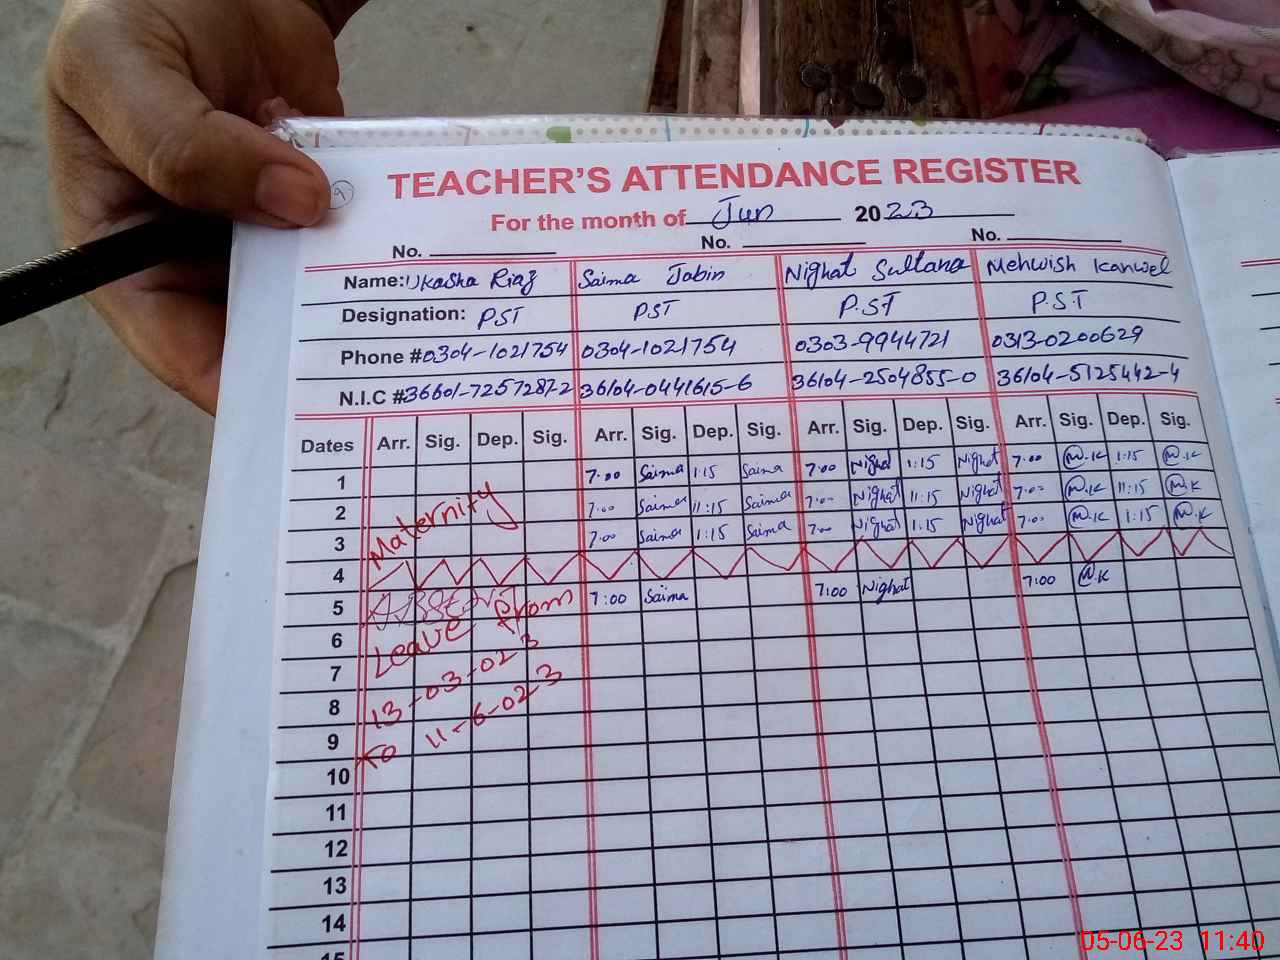 9
TEACHER'S ATTENDANCE REGISTER
For the month of Jun 2023
No. No. No.
Name: Ukasha Riaz Saima Jabin Nighat Sultana Mehwish Kanwel
Designation: PST PST P.ST P.ST
Phone #0304-1021754 0304-1021754 0303-9944721 0313-0200629
N.I.C #36601-7257287-2 36104-0441615-6 36104-2504855-0 36104-5125442-4
Dates Arr. Sig. Dep. Sig. Arr. Sig. Dep. Sig. Arr. Sig. Dep. Sig. Arr. Sig. Dep. Sig.
1 7:00 Saima 1:15 Saima 7:00 Nighat 1:15 Nighat 7:00 M.K 1:15 M.K
2 7:00 Saima 11:15 Saima 7:00 Nighat 11:15 Nighat 7:00 M.K 11:15 M.K
3 7:00 Saima 1:15 Saima 7:00 Nighat 1:15 Nighat 7:00 M.K 1:15 M.K
Maternity
4
5 7:00 Saima 7:00 Nighat 7:00 M.K
Leave from
6
13-03-023
7
to 11-6-023
8
9
10
11
12
13
14
15
05-06-23 11:40